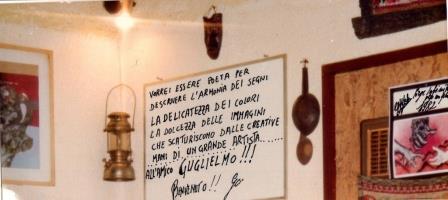 VORREI ESSERE POETA PER
DESCRIVERE L'ARMONIA DEI SEGNI
LA DELICATEZZA DEI COLORI
LA DOLCEZZA DELLE IMMAGINI
CHE SCATURISCONO DALLE CREATIVE
MANI DI UN GRANDE ARTISTA
ALL'AMICO GUGLIELMO!!!
BENVENUTO!!